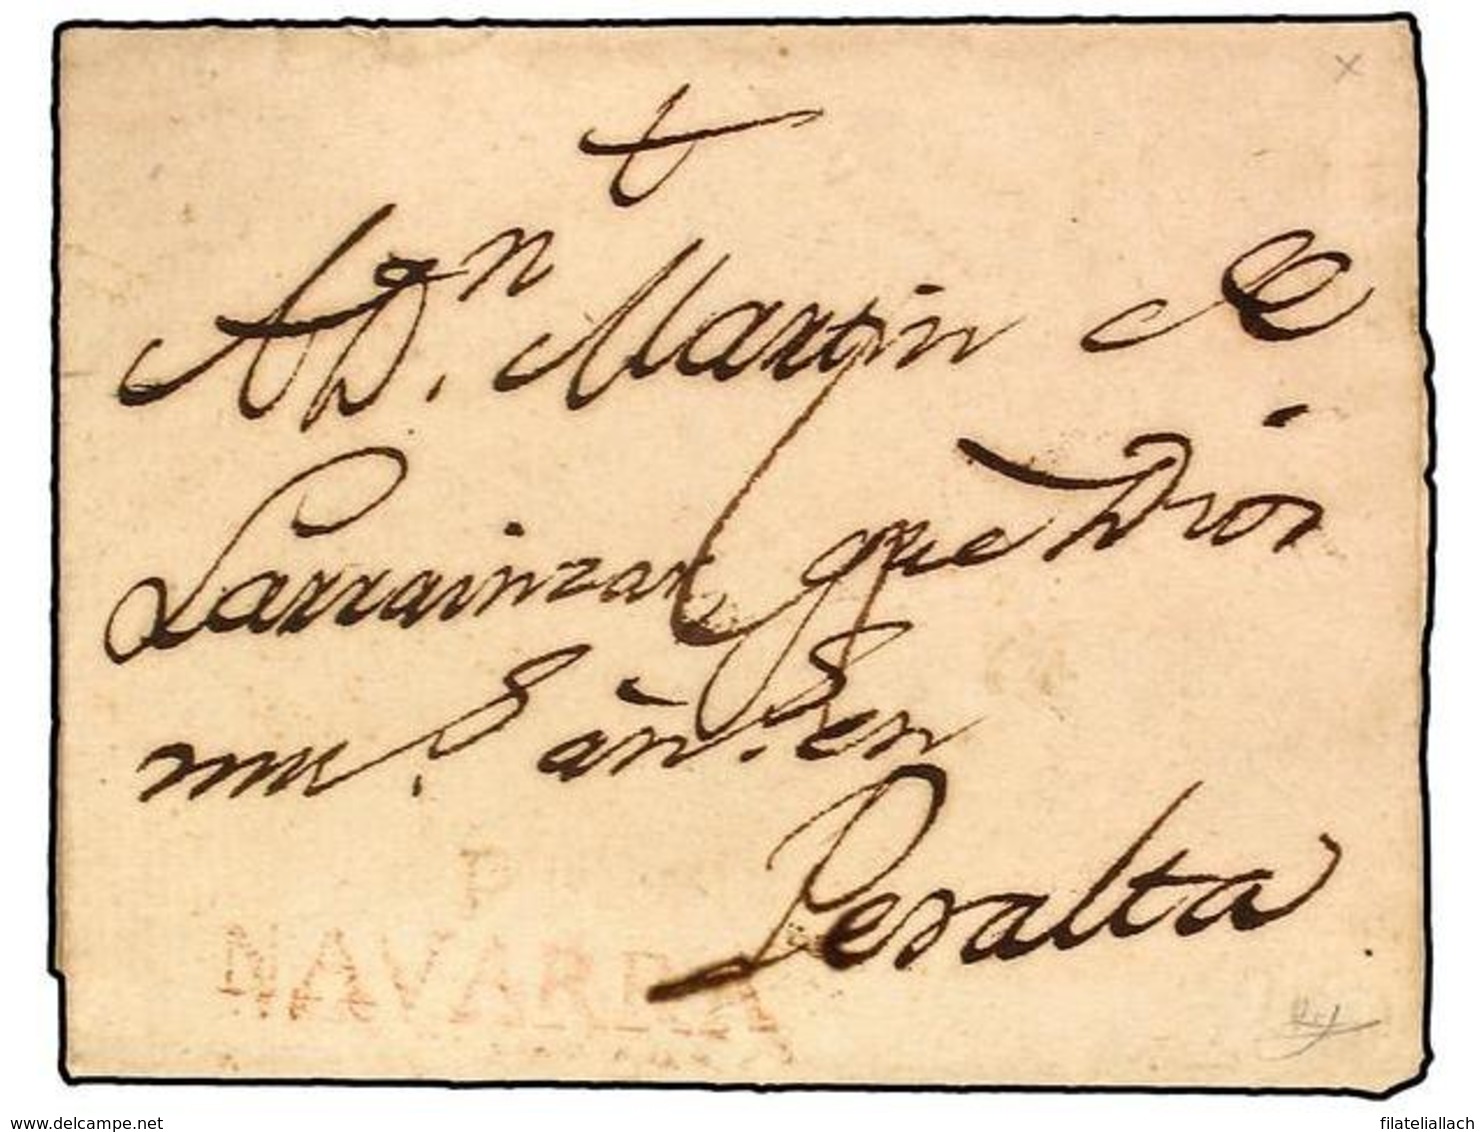 A Dn. Martin de
Larrainzar, que Dios
mu. s. an. s. en
Peralta
P
NAVARRA
www.delcampe.net
filateliallach